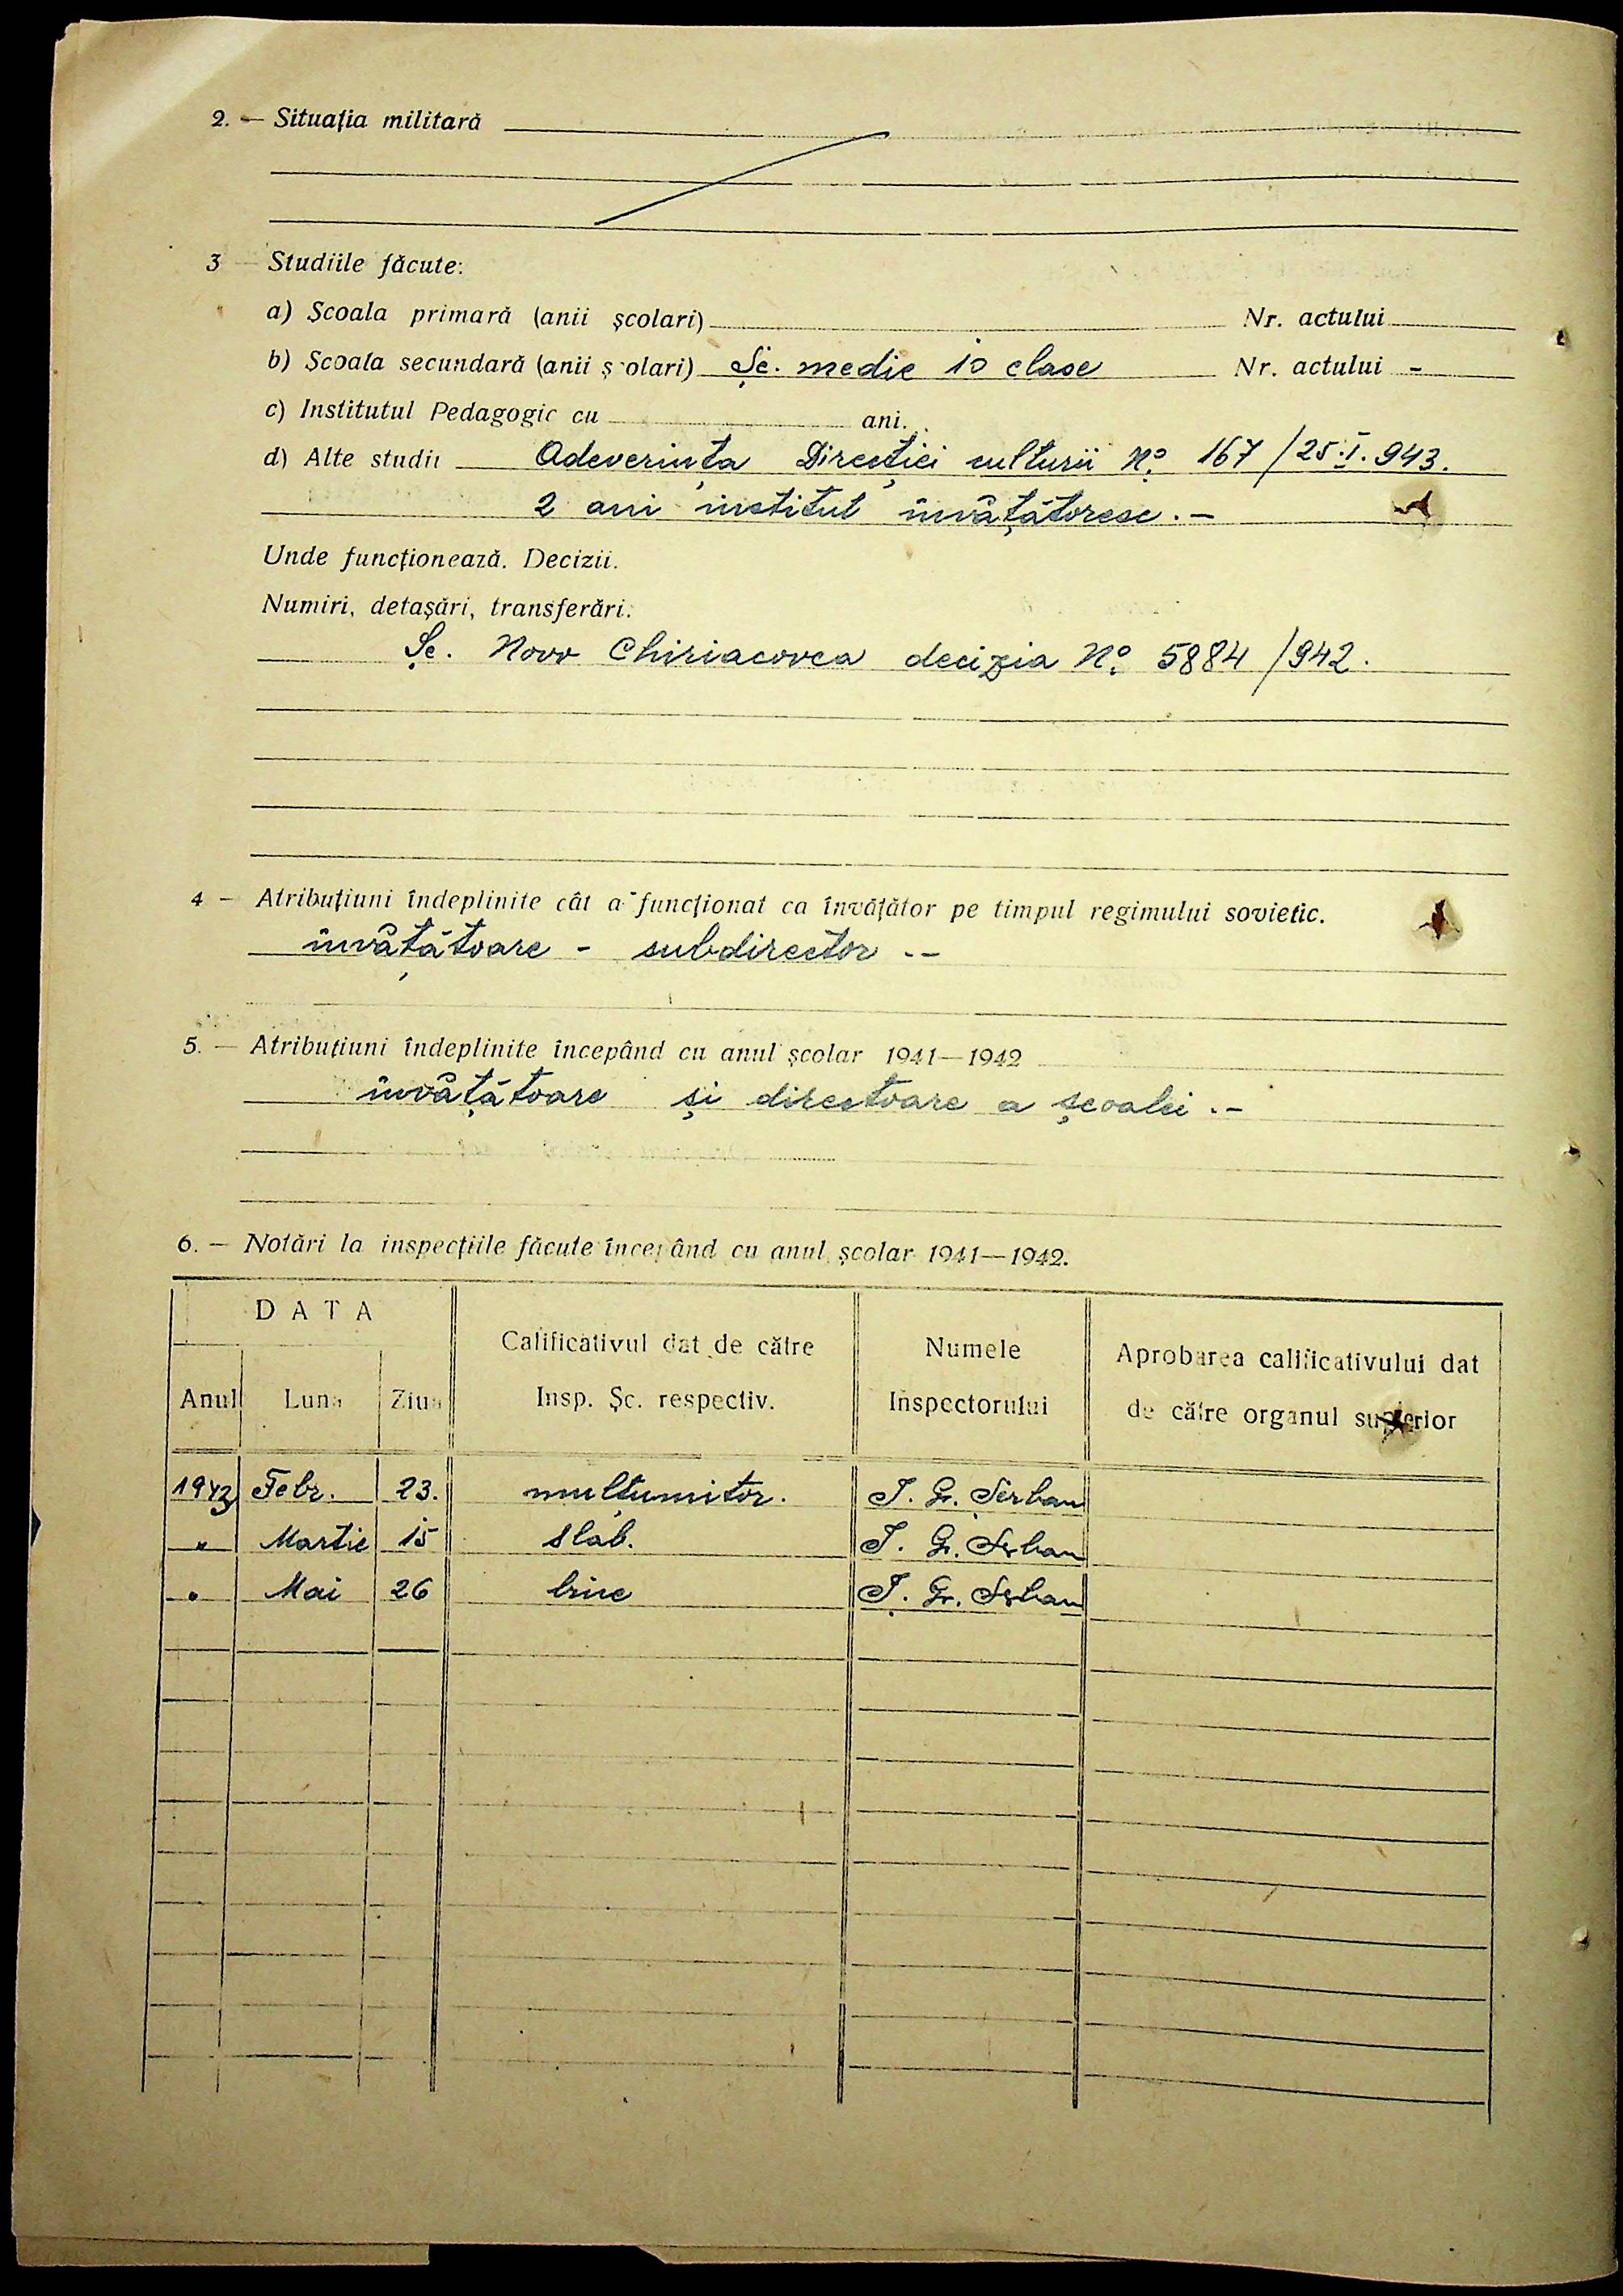 2. — Situația militară
3 — Studiile făcute:
a) Școala primară (anii școlari) Nr. actului
b) Școala secundară (anii școlari) Șc. medie 10 clase Nr. actului -
c) Institutul Pedagogic cu ani.
d) Alte studii Adeverința Direcției culturii No. 167/25.I.943.
2 ani institut învățătoresc.-
Unde funcționează. Decizii.
Numiri, detașări, transferări.
Șc. Novo Chiriacovca decizia No. 5884/942.
4 — Atribuțiuni îndeplinite cât a funcționat ca învățător pe timpul regimului sovietic.
învățătoare - subdirector .-
5. — Atribuțiuni îndeplinite începând cu anul școlar 1941—1942
învățătoare și directoare a școalei .-
6. — Notări la inspecțiile făcute începând cu anul școlar 1941—1942.
DATA Calificativul dat de către Numele Aprobarea calificativului dat
Anul Luna Ziua Insp. Șc. respectiv. Inspectorului de către organul superior
1943 Febr. 23. mulțumitor. I. Gr. Șerban
" Martie 15 slab. I. Gr. Șerban
" Mai 26 bine I. Gr. Șerban